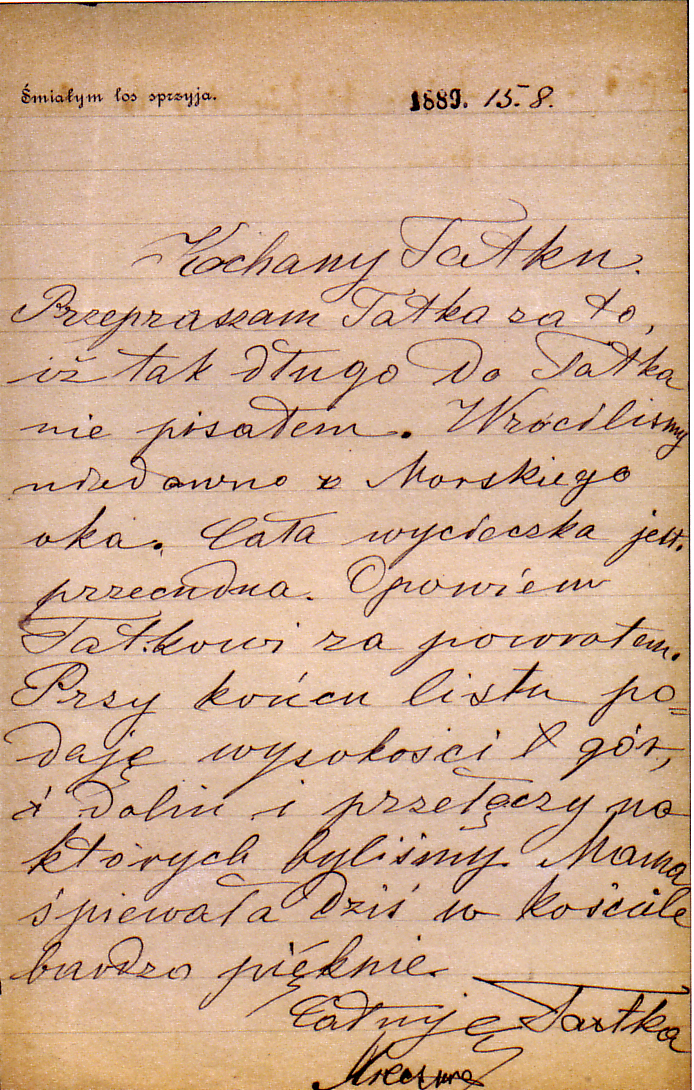 Śmiałym los sprzyja.
1889. 15. 8.
Kochany Tatku.
Przepraszam Tatka za to,
iż tak długo do Tatka
nie pisałem. Wróciliśmy
niedawno z Morskiego
oka. Cała wycieczka jest.
przecudna. Opowiem
Tatkowi za powrotem.
Przy końcu listu po=
daję wysokości gór,
i dolin i przełęczy na
których byliśmy. Mama
śpiewała dziś w kościele
bardzo pięknie.
Całuję Tatka